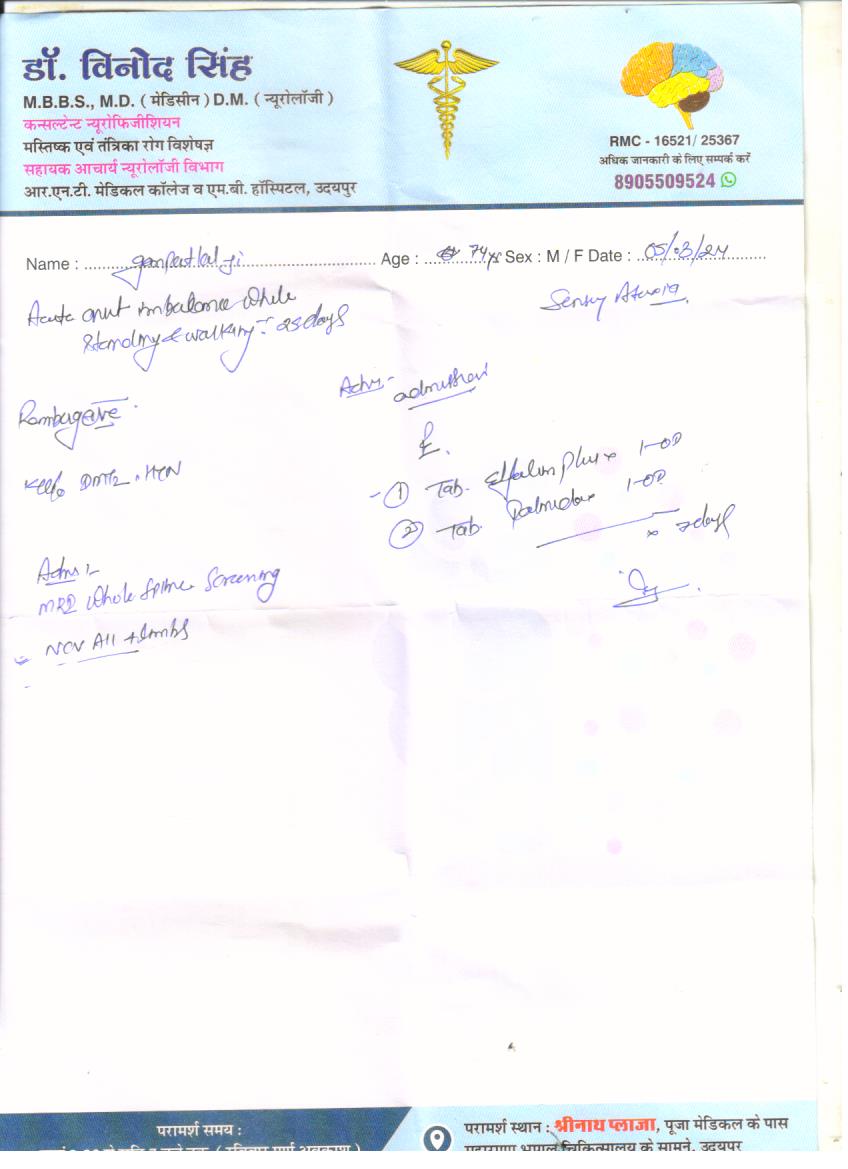 डॉ. विनोद सिंह
M.B.B.S., M.D. ( मेडिसीन ) D.M. ( न्यूरोलॉजी )
कन्सल्टेन्ट न्यूरोफिजीशियन
मस्तिष्क एवं तंत्रिका रोग विशेषज्ञ
सहायक आचार्य न्यूरोलॉजी विभाग
आर.एन.टी. मेडिकल कॉलेज व एम.बी. हॉस्पिटल, उदयपुर
RMC - 16521/ 25367
अधिक जानकारी के लिए सम्पर्क करें
8905509524
Name : ganpat lal ji Age : 74 yr Sex : M / F Date : 05/03/24
Acute onset imbalance while
standing & walking - 25 days
Sensory Ataxia
Romberg +ve
K/c/o DM2, HTN
Adv:- admission
① Tab. Plus x 1-OD
② Tab. 1-OD
x 7 days
Adv:-
MRI Whole Spine Screening
NCV All 4 limbs
परामर्श समय :
परामर्श स्थान : श्रीनाथ प्लाजा, पूजा मेडिकल के पास
महाराणा भूपाल चिकित्सालय के सामने, उदयपुर